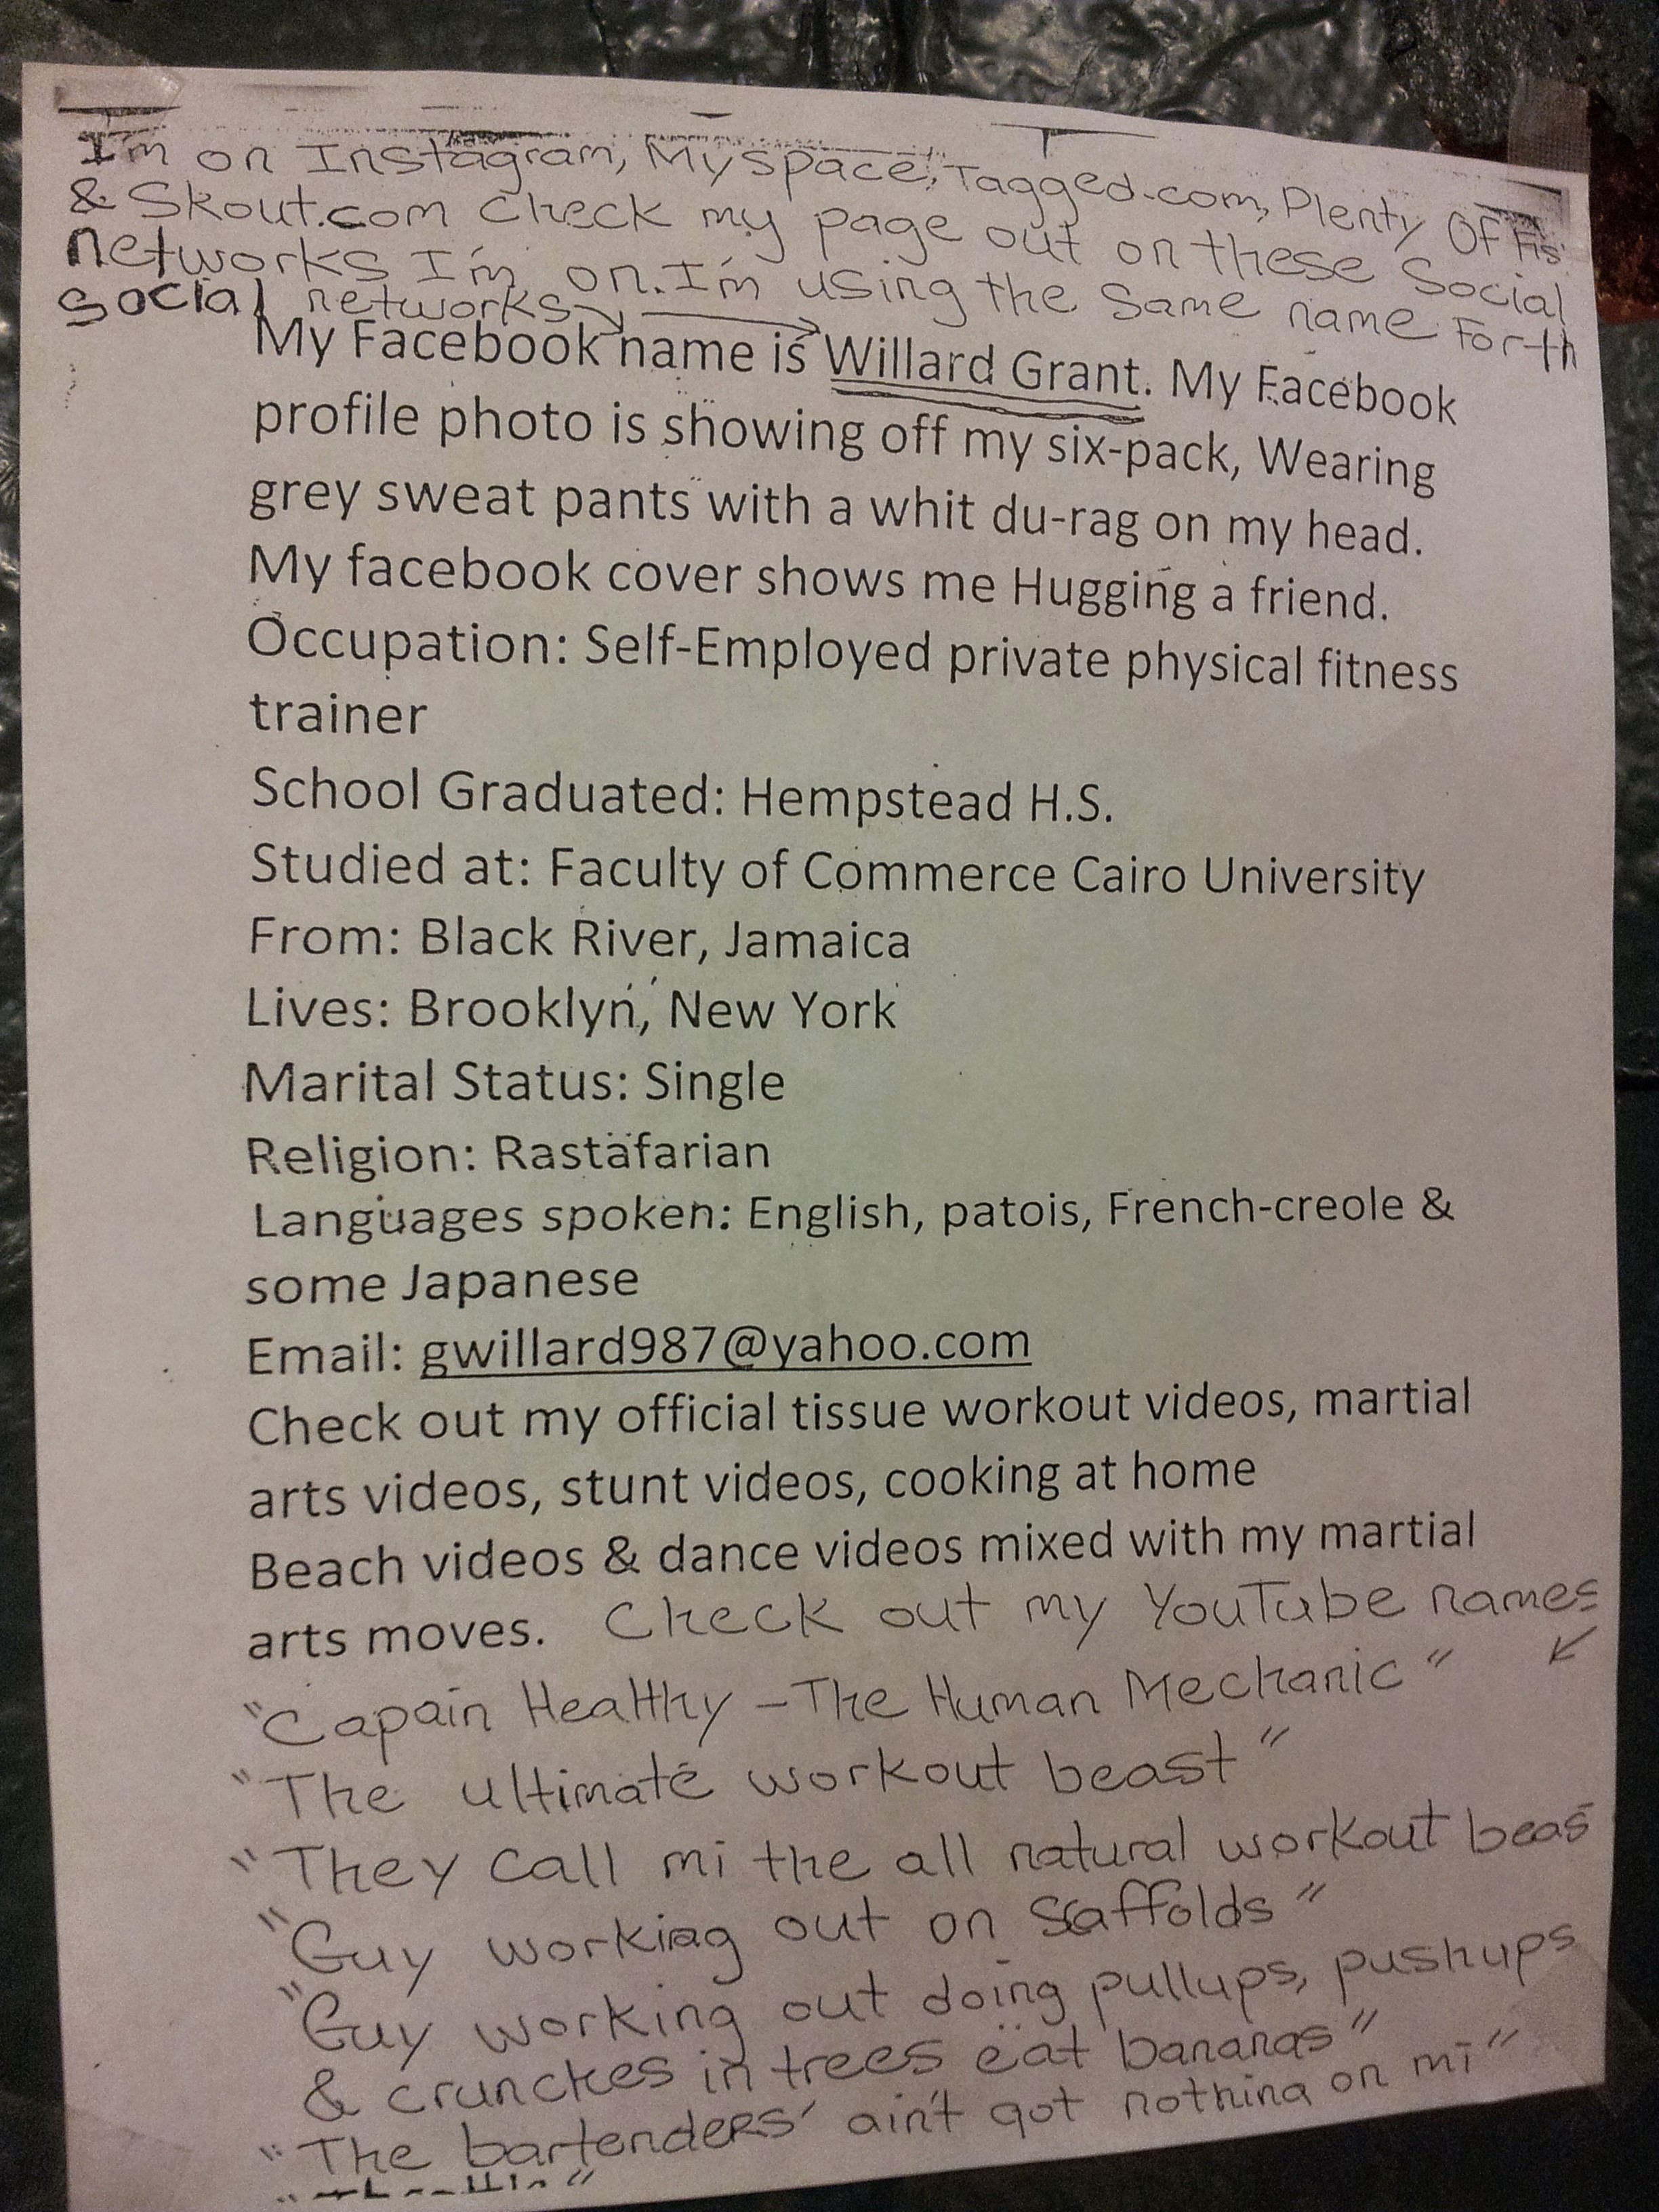 I'm on Instagram, Myspace, Tagged.com, Plenty Of Fis
& Skout.com Check my page out on these Social
networks I'm on. I'm using the Same name For th
social networks
My Facebook name is Willard Grant. My Facebook
profile photo is showing off my six-pack, Wearing
grey sweat pants with a whit du-rag on my head.
My facebook cover shows me Hugging a friend.
Occupation: Self-Employed private physical fitness
trainer
School Graduated: Hempstead H.S.
Studied at: Faculty of Commerce Cairo University
From: Black River, Jamaica
Lives: Brooklyn, New York
Marital Status: Single
Religion: Rastafarian
Languages spoken: English, patois, French-creole &
some Japanese
Email: gwillard987@yahoo.com
Check out my official tissue workout videos, martial
arts videos, stunt videos, cooking at home
Beach videos & dance videos mixed with my martial
arts moves. Check out my YouTube names
"Capain Healthy - The Human Mechanic"
"The ultimate workout beast"
"They call mi the all natural workout beas
"Guy working out on Scaffolds"
"Guy working out doing pullups, pushups
& crunches in trees eat bananas"
"The bartenders' ain't got nothing on mi"